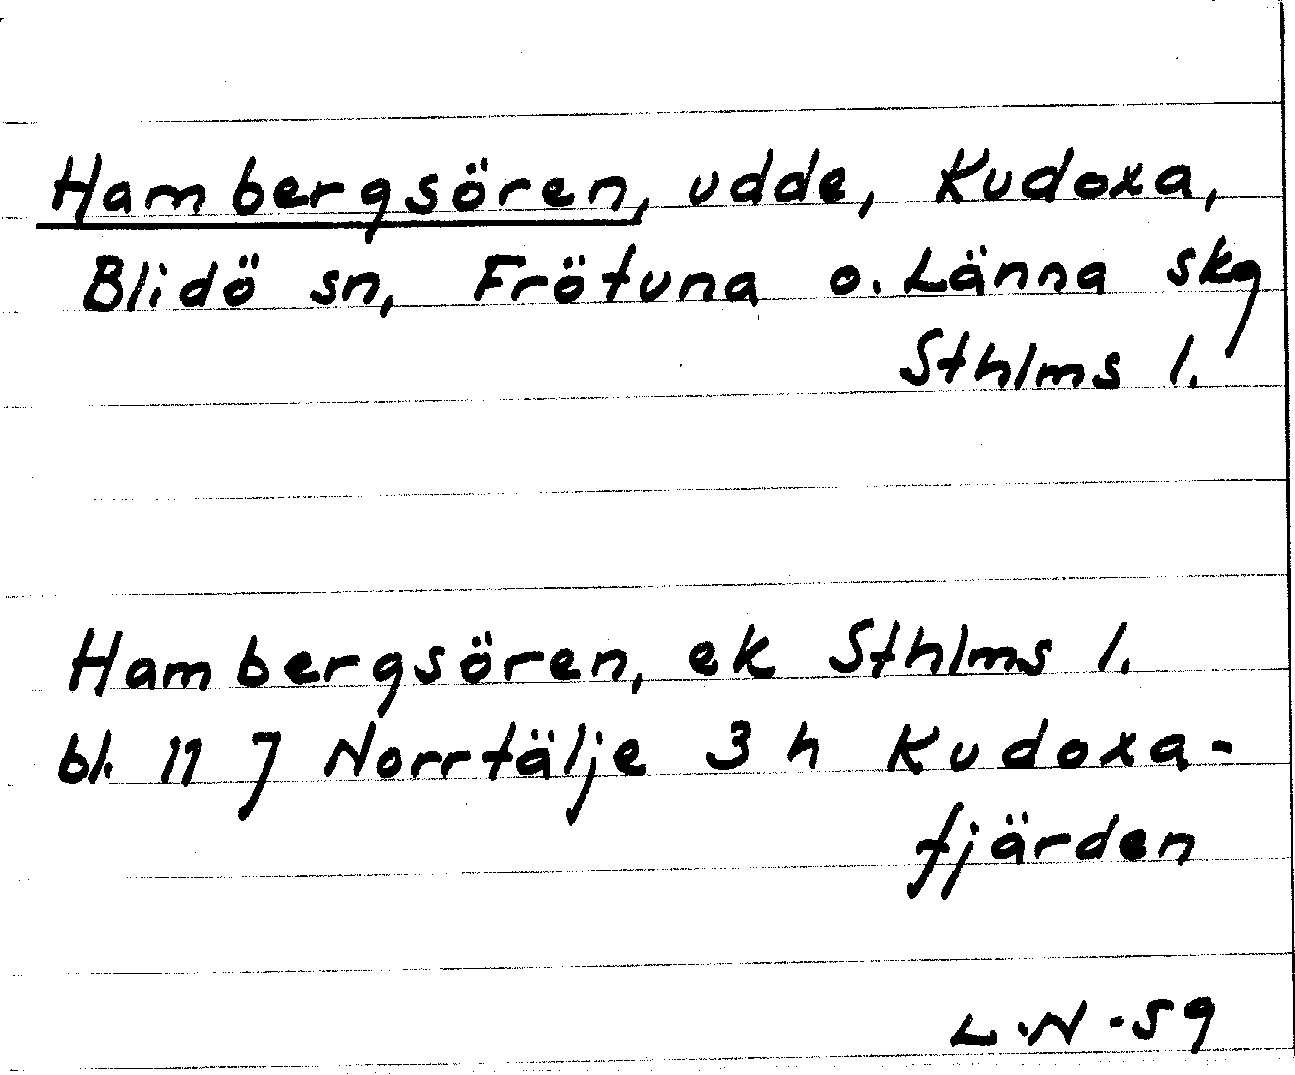 Hambergsören, udde, Kudoxa,
Blidö sn, Frötuna o. Länna skg
Sthlms l.
Hambergsören, ek Sthlms l.
bl. 11 J Norrtälje 3 h Kudoxa-
fjärden
L.N -59